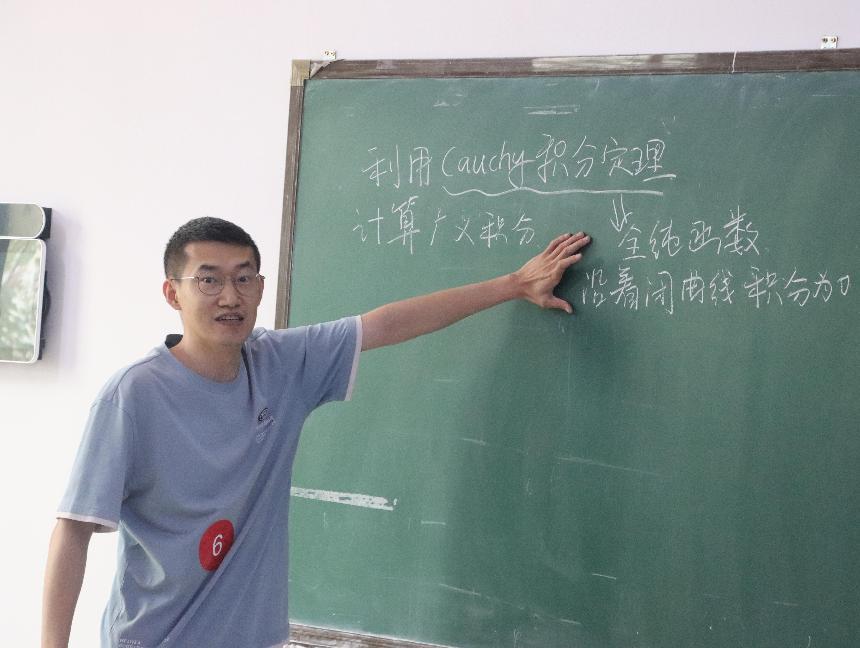 利用Cauchy积分定理
计算广义积分
全纯函数
沿着闭曲线积分为0
6